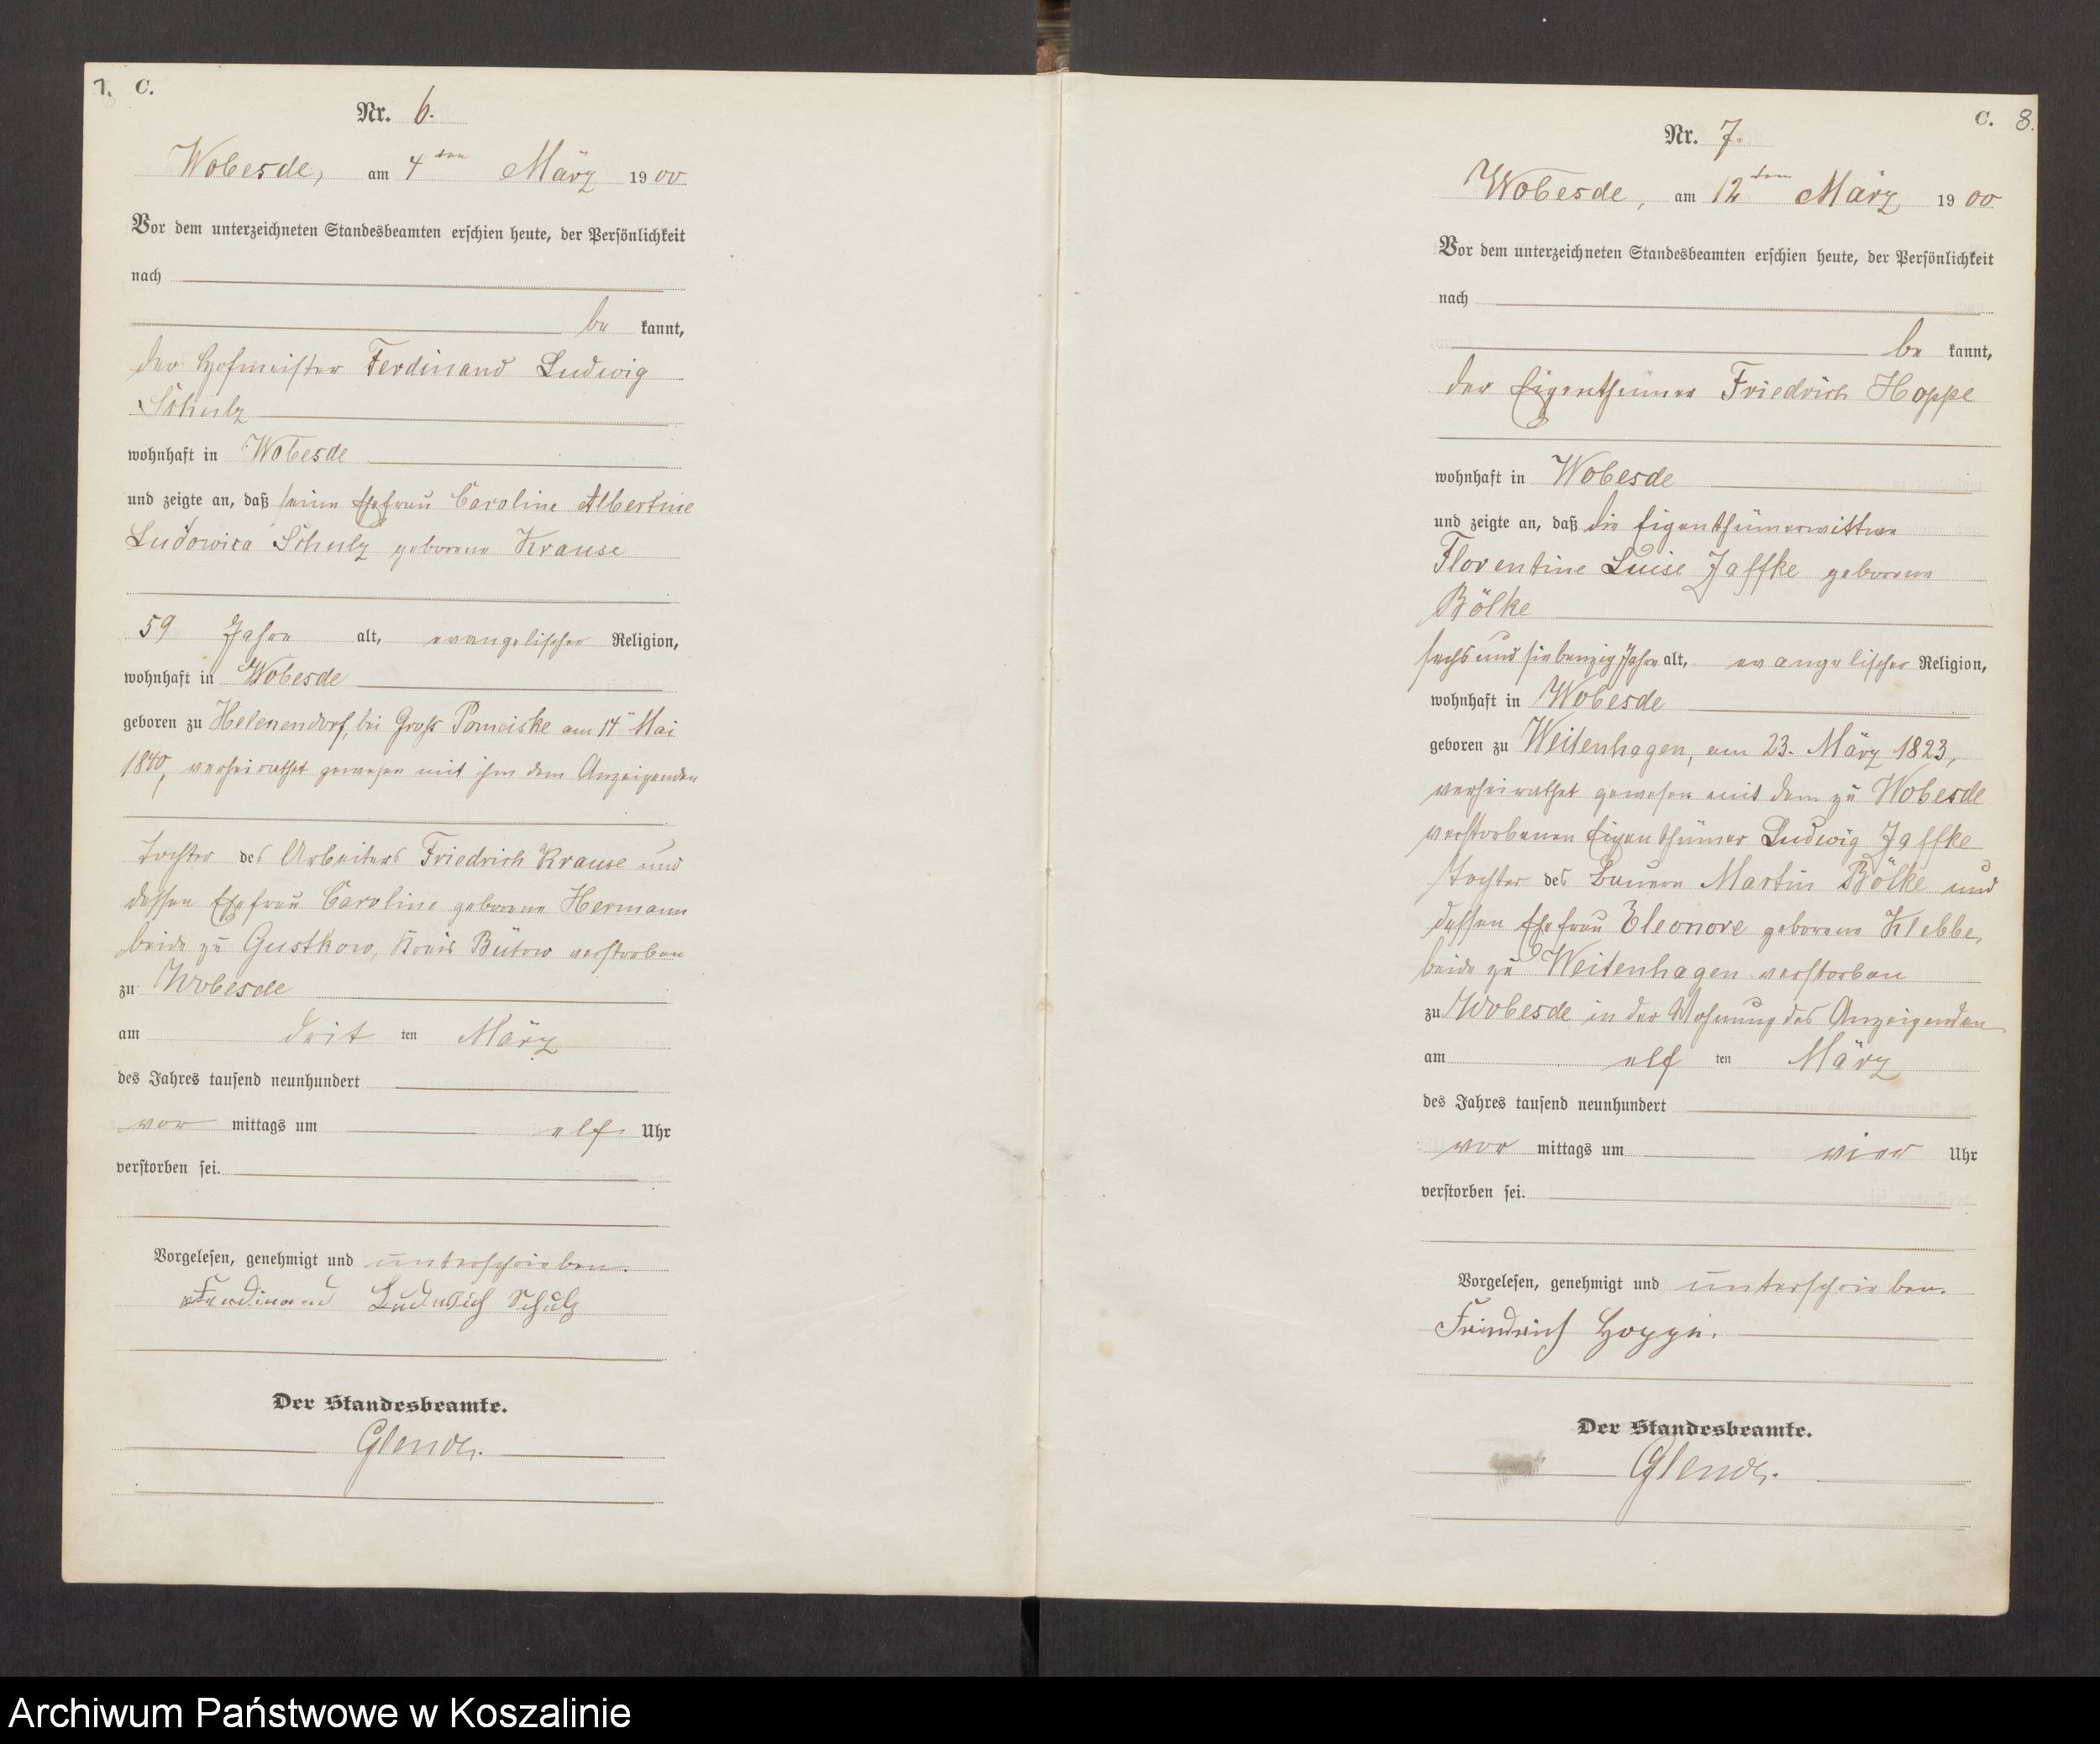 7. C.
Nr. 6.
Wobesde, am 4ten März 1900
Vor dem unterzeichneten Standesbeamten erschien heute, der Persönlichkeit
nach
be kannt,
der Hofmeister Ferdinand Ludwig
Schulz
wohnhaft in Wobesde
und zeigte an, daß seine Ehefrau Caroline Albertine
Ludowica Schulz geborene Krause
59 Jahre alt, evangelischer Religion,
wohnhaft in Wobesde
geboren zu Helenendorf, bei Groß Pomeiske am 14 Mai
1840, verheirathet gewesen mit ihm dem Anzeigenden
Tochter des Arbeiters Friedrich Krause und
dessen Ehefrau Caroline geborene Hermann
beide zu Gustkow, Kreis Bütow verstorben
zu Wobesde
am drit ten März
des Jahres tausend neunhundert
vor mittags um elf Uhr
verstorben sei.
Vorgelesen, genehmigt und unterschrieben.
Ferdinand Ludwich Schulz
Der Standesbeamte.
C. 8.
Nr. 7.
Wobesde, am 12ten März 1900
Vor dem unterzeichneten Standesbeamten erschien heute, der Persönlichkeit
nach
be kannt,
der Eigenthümer Friedrich Hoppe
wohnhaft in Wobesde
und zeigte an, daß die Eigenthümerwittwe
Florentine Luise Jaffke geborene
Bölke
sechs und siebenzig Jahre alt, evangelischer Religion,
wohnhaft in Wobesde
geboren zu Weitenhagen, am 23. März 1823,
verheirathet gewesen mit dem zu Wobesde
verstorbenen Eigenthümer Ludwig Jaffke
Tochter des Bauern Martin Bölke und
dessen Ehefrau Eleonore geborene Klebbe,
beide zu Weitenhagen verstorben
zu Wobesde in der Wohnung des Anzeigenden
am elf ten März
des Jahres tausend neunhundert
vor mittags um vier Uhr
verstorben sei.
Vorgelesen, genehmigt und unterschrieben.
Friedrich Hoppe.
Der Standesbeamte.
Archiwum Państwowe w Koszalinie